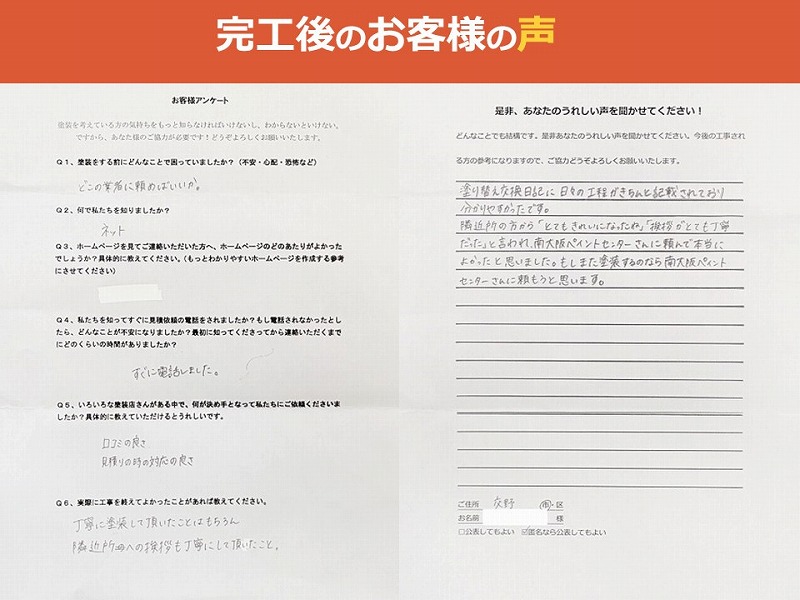 完工後のお客様の声
お客様アンケート
塗装を考えている方の気持ちをもっと知らなければいけないし、わからないといけない。
ですから、あなた様のご協力が必要です！どうぞよろしくお願いいたします。
Q１、塗装をする前にどんなことで困っていましたか？（不安・心配・恐怖など）
どこの業者に頼めばいいか。
Q２、何で私たちを知りましたか？
ネット
Q３、ホームページを見てご連絡いただいた方へ、ホームページのどのあたりがよかった
でしょうか？具体的に教えてください。（もっとわかりやすいホームページを作成する参考
にさせてください）
Q４、私たちを知ってすぐに見積依頼の電話をされましたか？もし電話されなかったとし
たら、どんなことが不安になりましたか？最初に知ってくださってから連絡いただくまで
にどのくらいの時間がありましたか？
すぐに電話しました。
Q５、いろいろな塗装店さんがある中で、何が決め手となって私たちにご依頼くださいま
したか？具体的に教えていただけるとうれしいです。
口コミの良さ
見積りの時の対応の良さ
Q６、実際に工事を終えてよかったことがあれば教えてください。
丁寧に塗装して頂いたことはもちろん
隣近所への挨拶も丁寧にして頂いたこと。
是非、あなたのうれしい声を聞かせてください！
どんなことでも結構です。是非あなたのうれしい声を聞かせてください。今後の工事され
る方の参考になりますので、ご協力どうぞよろしくお願いいたします。
塗り替え交換日記に日々の工程がきちんと記載されており
分かりやすかったです。
隣近所の方から「とてもきれいになったね」「挨拶がとても丁寧
だった」と言われ、南大阪ペイントセンターさんに頼んで本当に
よかったと思いました。もしまた塗装するのなら南大阪ペイント
センターさんに頼もうと思います。
ご住所 交野 市・区
お名前 様
□公表してもよい ☑匿名なら公表してもよい